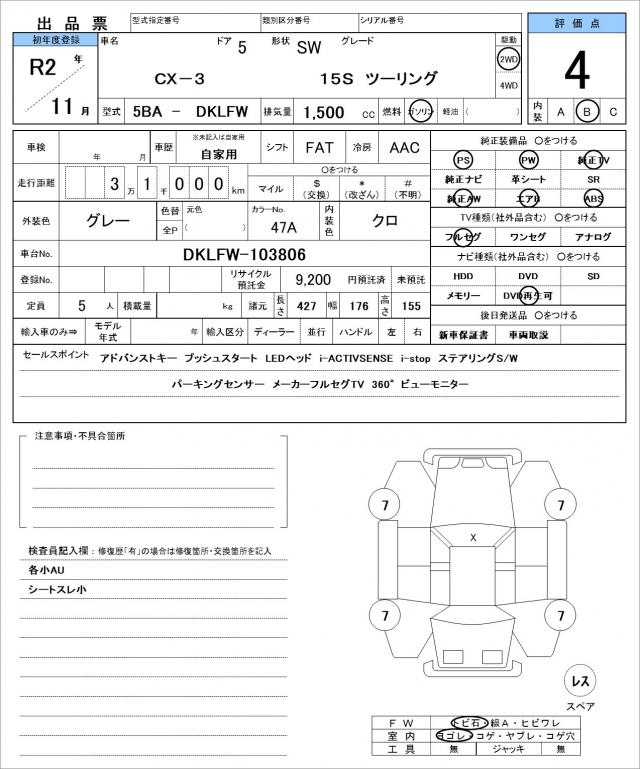 出品票 型式指定番号 類別区分番号 シリアル番号 評価点
初年度登録 車名 ドア 5 形状 SW グレード 駆動
R2 年 CX-3 15S ツーリング 2WD 4WD 4
11 月 型式 5BA - DKLFW 排気量 1,500 cc 燃料 ガソリン 軽油 ( ) 内装 A B C
車検 年 月 車歴 ※未記入は自家用 自家用 シフト FAT 冷房 AAC 純正装備品 〇をつける
PS PW 純正TV
走行距離 3 万 1 千 0 0 0 km 〇をつける マイル $ (交換) * (改ざん) # (不明) 純正ナビ 革シート SR
純正AW エアB ABS
外装色 グレー 色替 元色 全P ( ) カラーNo. 47A 内装色 クロ TV種類(社外品含む) 〇をつける
フルセグ ワンセグ アナログ
車台No. DKLFW-103806 ナビ種類(社外品含む) 〇をつける
登録No. リサイクル預託金 9,200 円預託済 未預託 HDD DVD SD
定員 5 人 積載量 kg 諸元 長さ 427 幅 176 高さ 155 メモリー DVD再生可
後日発送品 〇をつける
輸入車のみ⇒ モデル年式 年 輸入区分 ディーラー 並行 ハンドル 左 右 新車保証書 車両取説
セールスポイント アドバンストキー プッシュスタート LEDヘッド i-ACTIVSENSE i-stop ステアリングS/W
パーキングセンサー メーカーフルセグTV 360° ビューモニター
注意事項・不具合箇所
7 7
X
検査員記入欄：修復歴「有」の場合は修復箇所・交換箇所を記入
各小AU
シートスレ小
7 7
レス
スペア
FW トビ石・線A・ヒビワレ
室内 ヨゴレ・コゲ・ヤブレ・コゲ穴
工具 無 ジャッキ 無